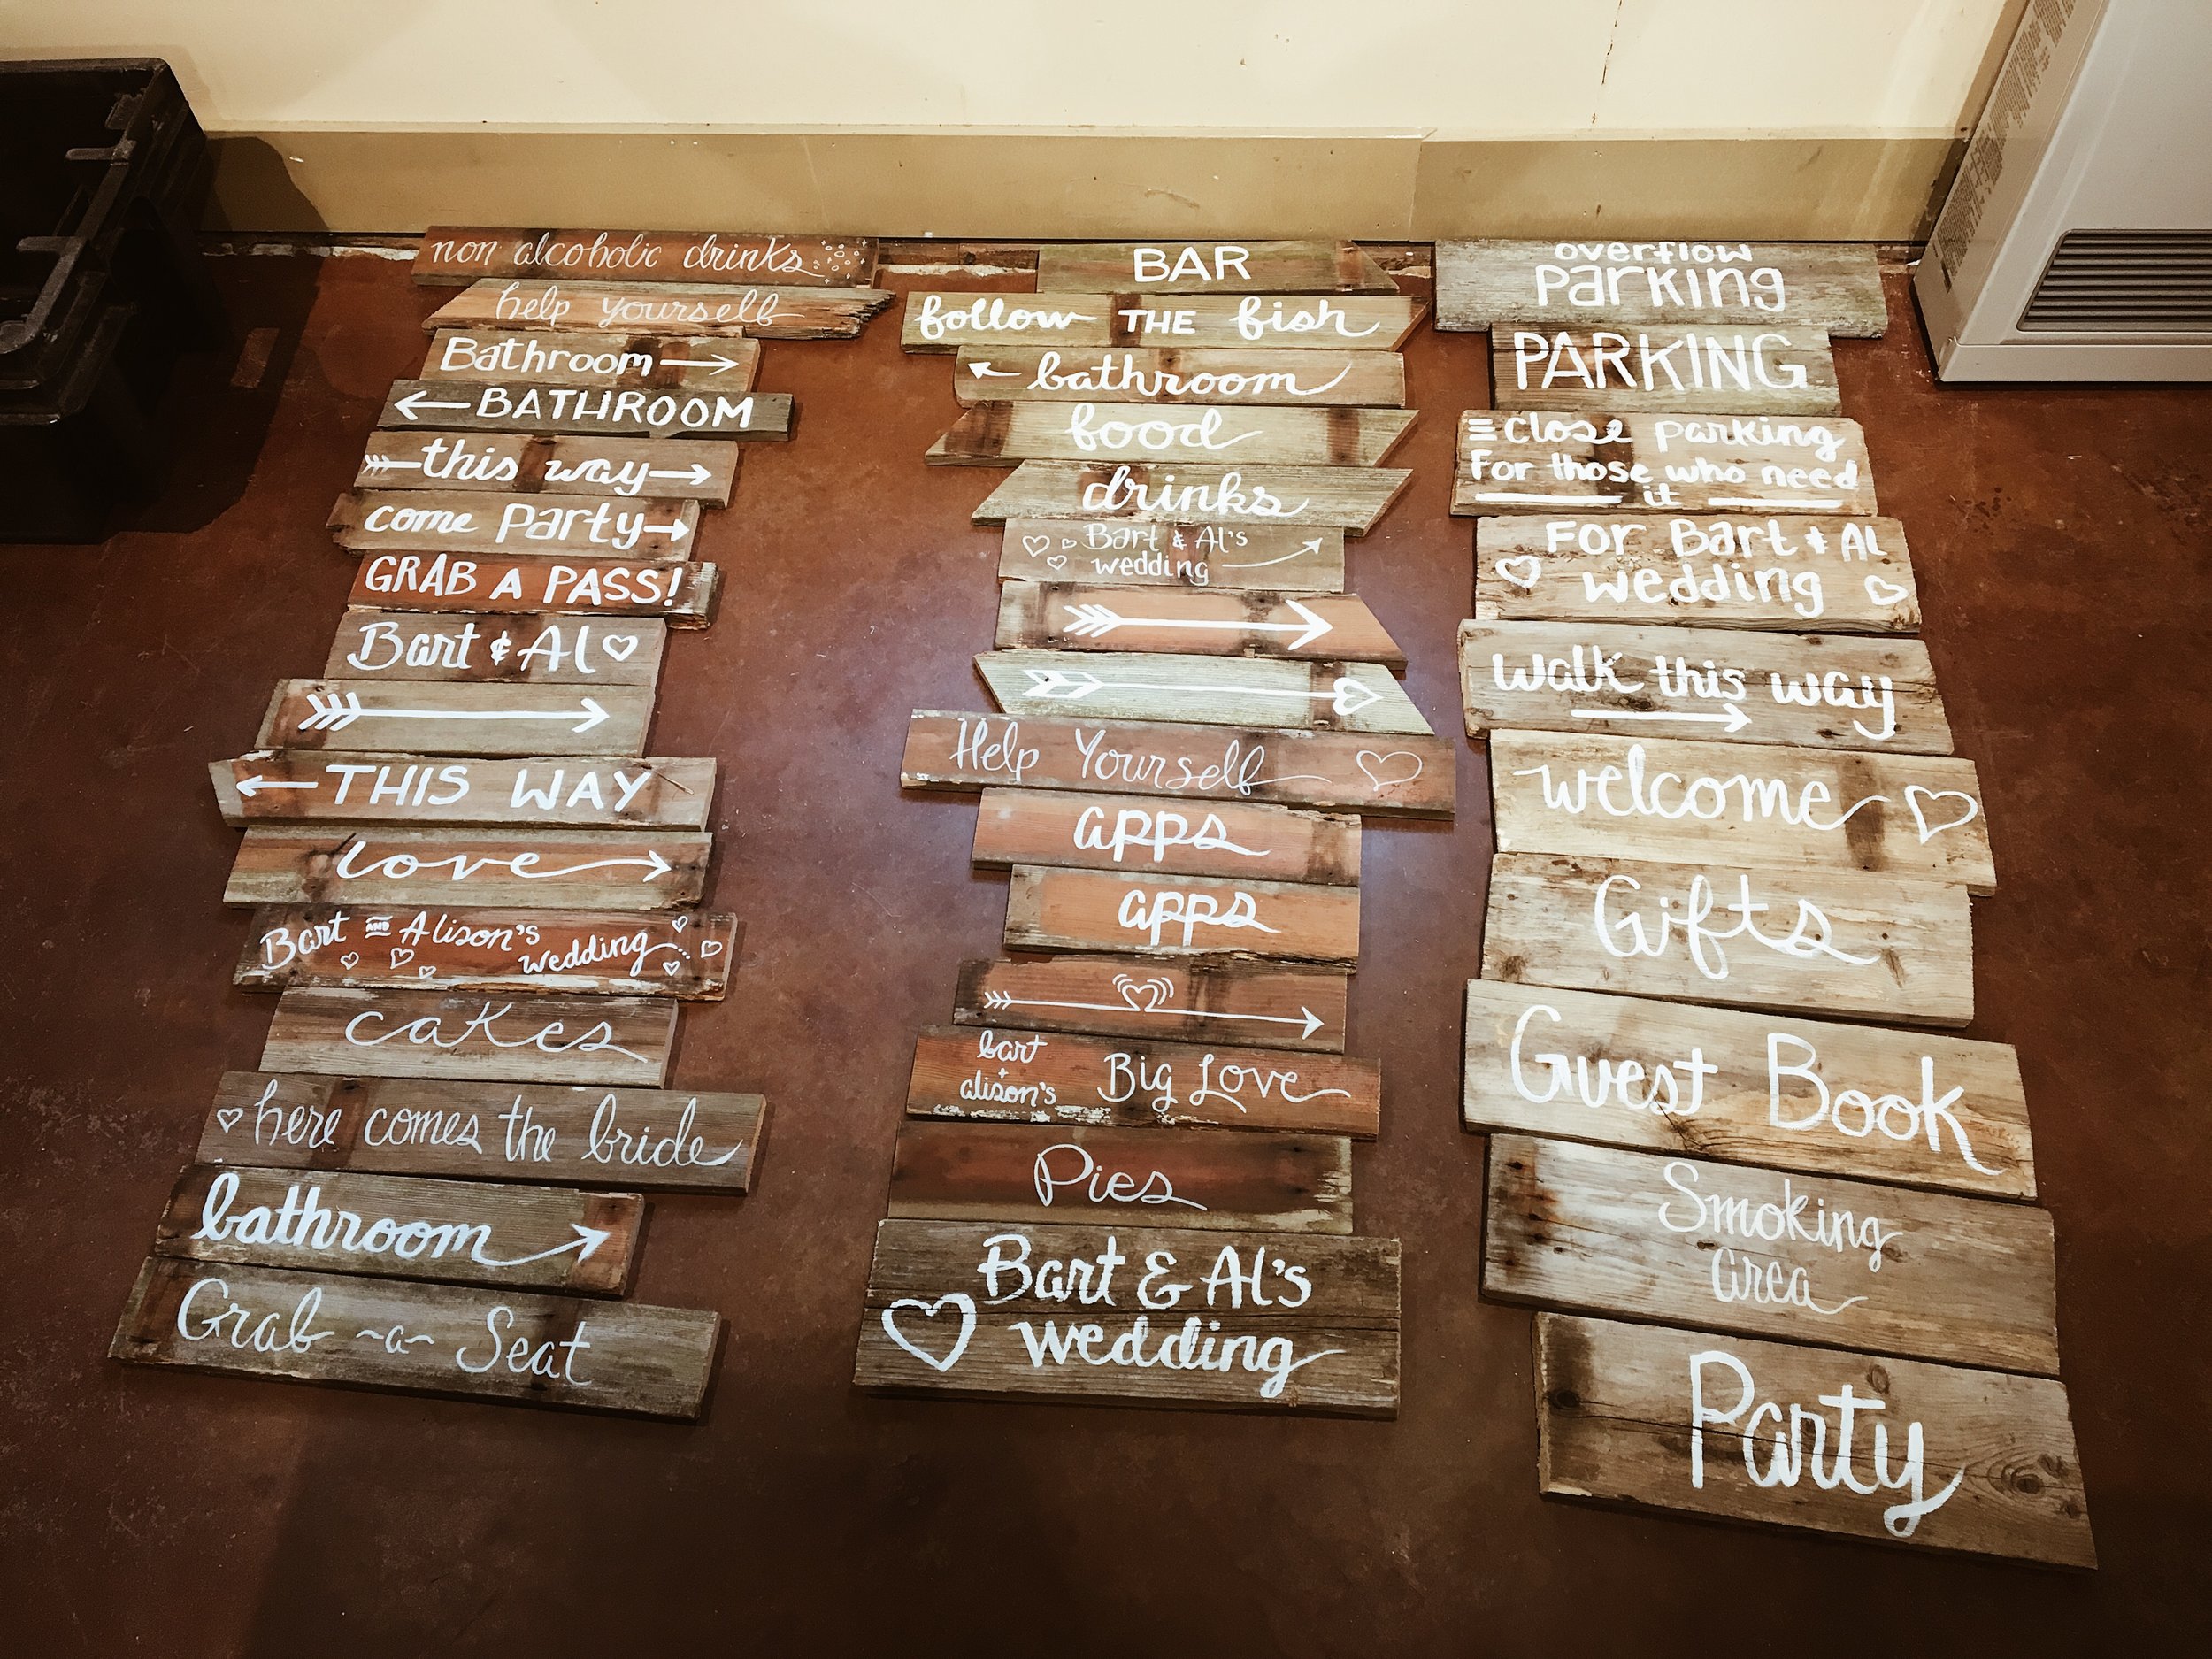 non alcoholic drinks
help yourself
Bathroom
BATHROOM
this way
come Party
GRAB A PASS!
Bart & Al
THIS WAY
love
Bart AND Alison's
wedding
cakes
here comes the bride
bathroom
Grab ~a~ Seat
BAR
follow THE fish
bathroom
food
drinks
Bart & Al's
wedding
Help Yourself
apps
apps
bart
+
alison's
Big Love
Pies
Bart & Al's
wedding
overflow
parking
PARKING
close parking
For those who need
it
For Bart & Al
wedding
walk this way
welcome
Gifts
Guest Book
Smoking
area
Party